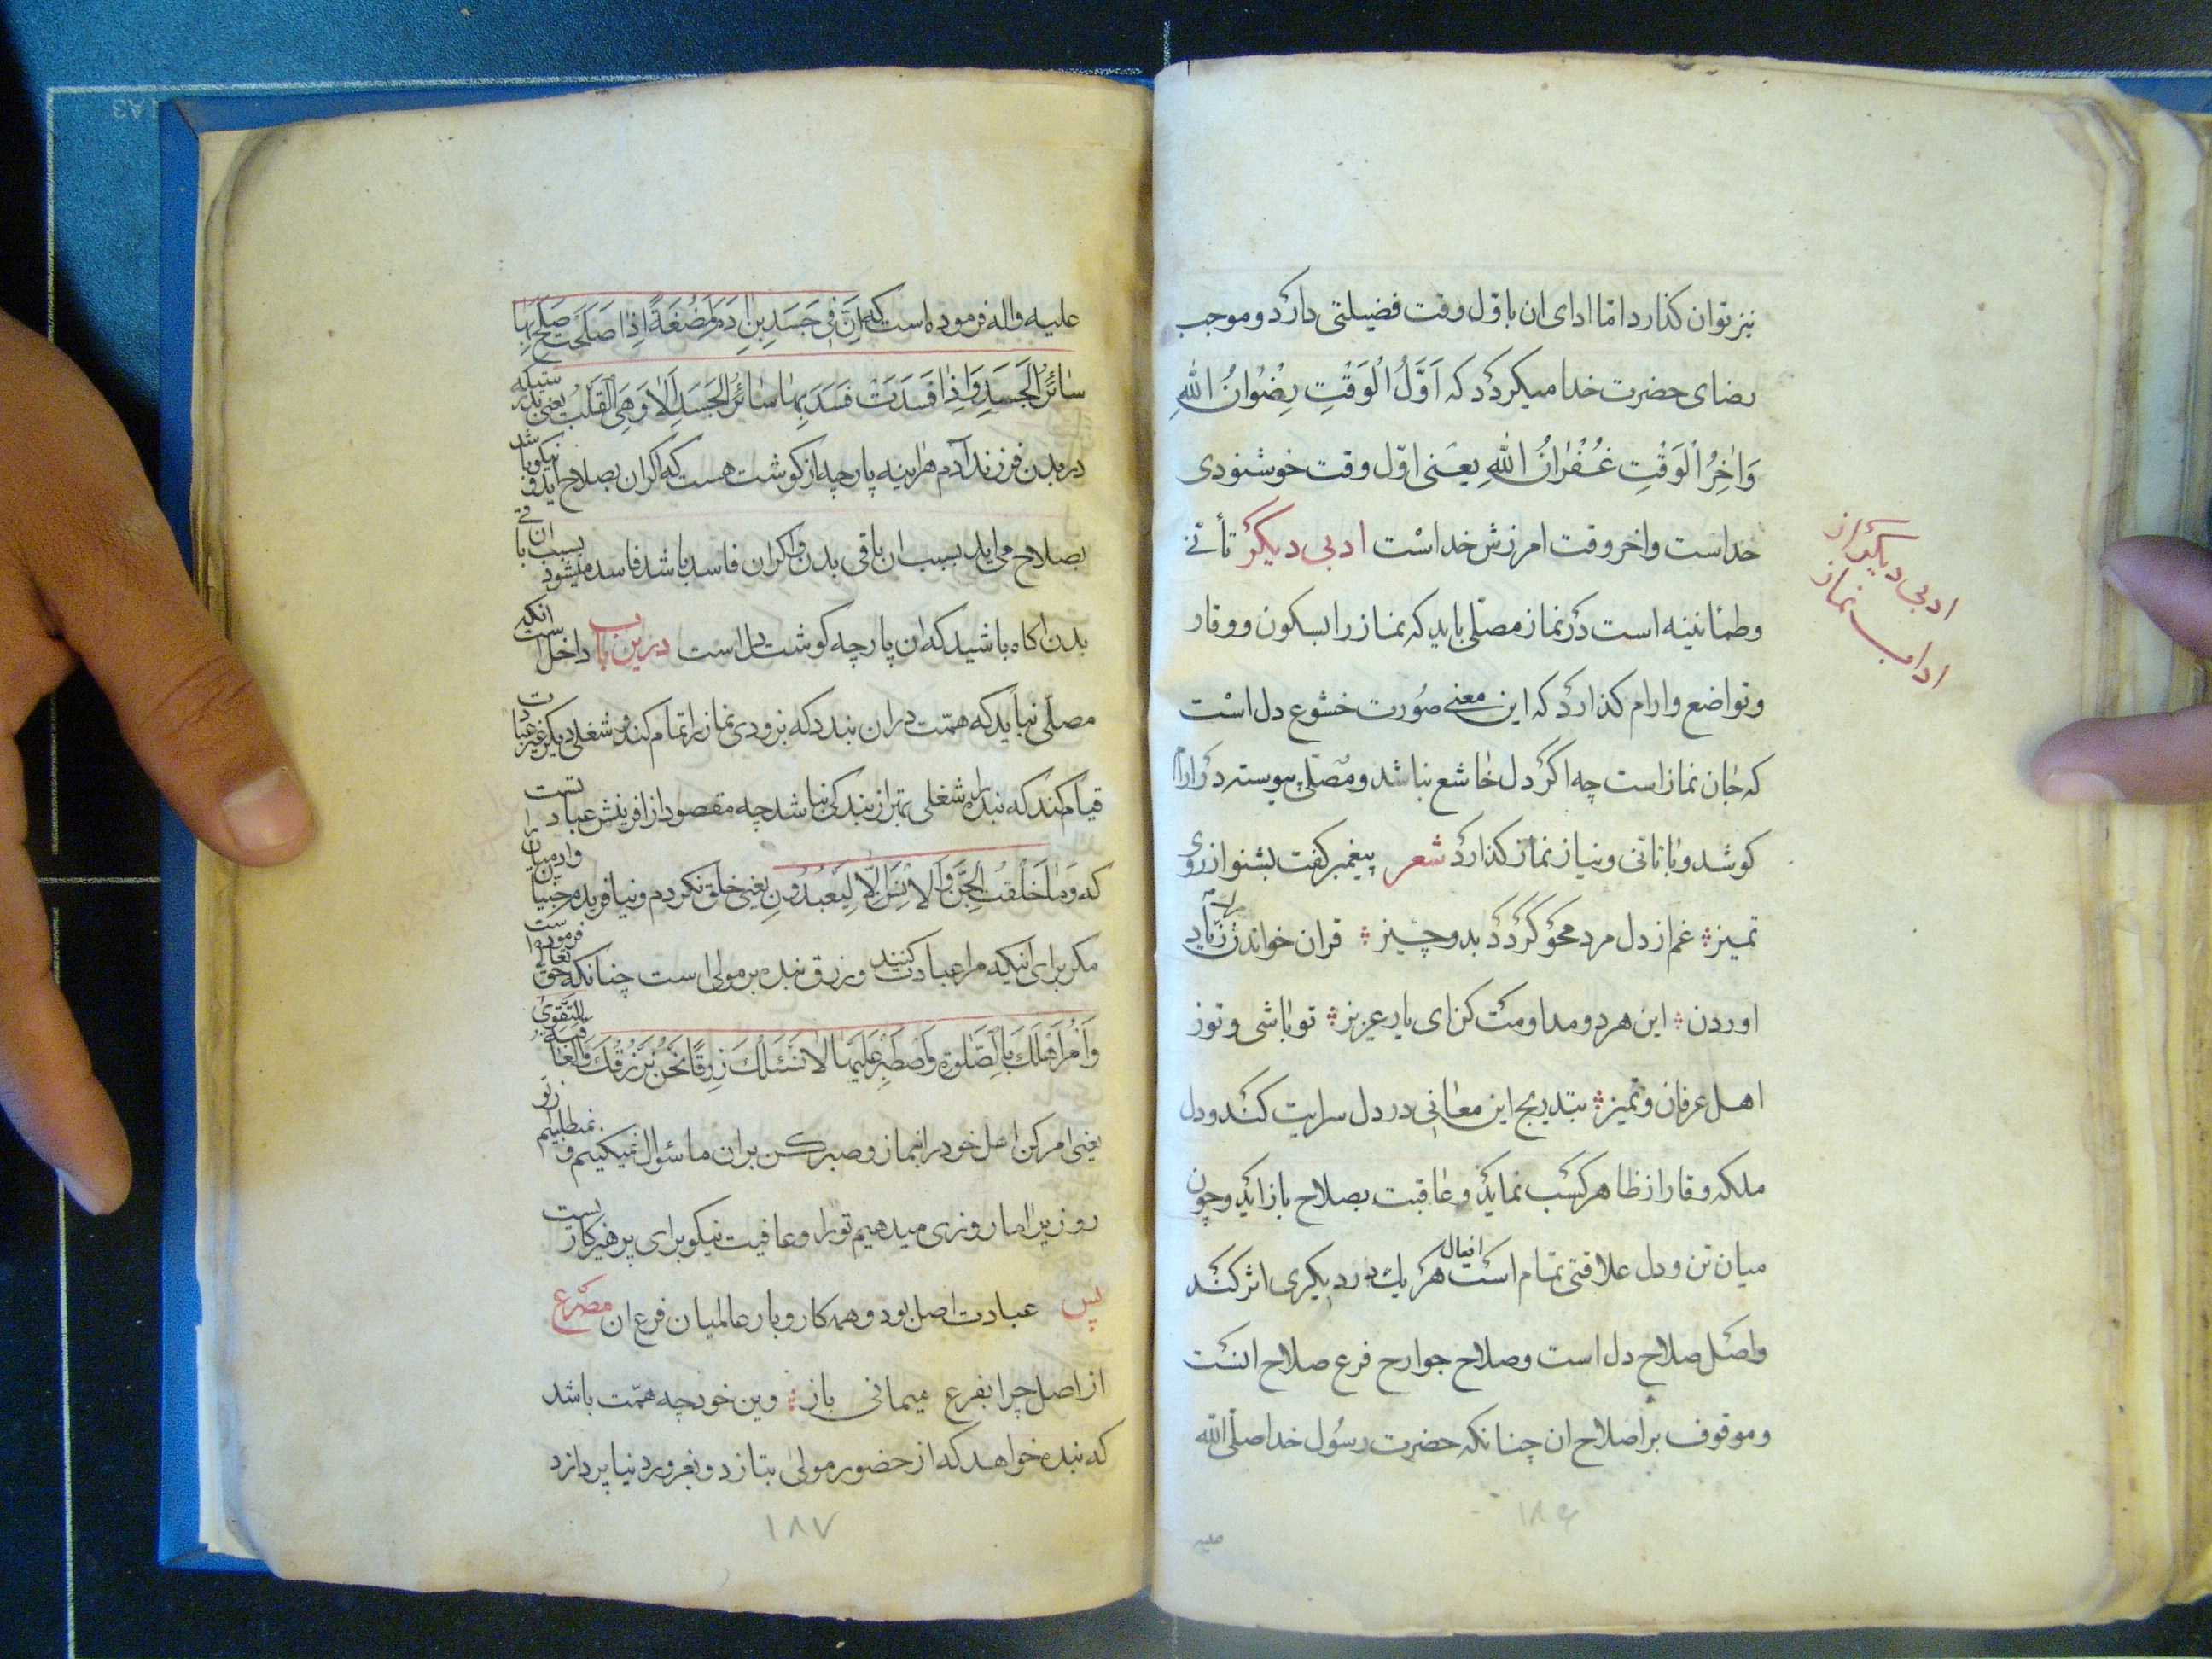 نیز توان کذارد امّا ادای ان باوّل وقت فضیلتی دارد و موجب
رضای حضرت خدا میکردد که اَوَّلُ الْوَقْتِ رِضْوانُ اللهِ
وَاخِرُ الْوَقْتِ غُفْرانُ اللهِ یعنی اوّل وقت خوشنودی
خداست و اخر وقت امرزش خداست ادبی دیکر تأنّے
و طمأنینه است در نماز مصلّی باید که نماز را بسکون و وقار
و تواضع و ارام کذارد که این معنے صورت خشوع دل است
که جان نماز است چه اکر دل خاشع نباشد و مصلّی پیوسته در ارام
کوشد و با تانّی و نیاز نماز کذارد شعر پیغمبر کفت بشنو از روی
تمیز غم از دل مرد محو کردد بدو چیز قران خواندن
اوردن این هر دو مداومت کن ای یار عزیز تو باشی و توز
اهل عرفان و تمیز بتدریج این معانی در دل سرایت کند و دل
ملکه وقار از ظاهر کسب نماید و عاقبت بصلاح باز اید و چون
میان تن و دل علاقتی تمام است هر یك در دیکری اثر کند
و اصل صلاح دل است و صلاح جوارح فرع صلاح انست
و موقوف بر اصلاح ان چنانکه حضرت رسول خدا صلّی الله
علیه
۱۸۶
ادبی دیکر از
اداب نماز
علیه واله فرموده است که اِنَّ فِی جَسَدِ بنِ ادَمَ لَمُضْغَةً اِذا صَلَحَتْ صَلَحَ بِهَا
سائرُ الجَسَدِ وَاِذا فَسَدَتْ فَسَدَ بِهَا سائرُ الجَسَدِ اَلا وَهِیَ القَلْبُ یعنی بدرستیکه
در بدن فرزند آدم هراینه پارچه از کوشت هست که اکر ان بصلاح اید و نیکو باشد
بصلاح می اید بسبب ان باقی بدن و اکر ان فاسد باشد فاسد میشود بسبب ان باقے
بدن اکاه باشید که ان پارچه کوشت دل است درین باب داخل است انکه
مصلّی نباید که همّت دران بندد که بزودی نماز را تمام کند و بشغلی دیکر غیر عبادت
قیام کند که بنده را شغلی بهتر از بندکی نباشد چه مقصود از افرینش عبادتست
که وَمَا خَلَقْتُ الجِنَّ وَالاِنْسَ اِلّا لِیَعْبُدُونِ یعنی خلق نکردم و نیافریدم جنیان و ادمیان را
مکر برای اینکه مرا عبادت کنند و رزق بنده بر مولی است چنانکه حق تعالی فرموده است
وَأْمُرْ اَهْلَكَ بِالصَّلوةِ وَاصْطَبِرْ عَلَیهَا لا نَسْئَلُكَ رِزْقًا نَحْنُ نَرْزُقُكَ وَالعَاقِبَةُ لِلتَّقْوی
یعنی امر کن اهل خود را بنماز و صبر کن بران ما سئوال نمیکنیم و نمیطلبیم از تو
روزی را ما روزی میدهیم تو را و عاقبت نیکو برای پرهیزکار یست
پس عبادت اصل بود و همه کار و بار عالمیان فرع ان مصرع
از اصل چرا بفرع میمانی باز وین خود چه همّت باشد
که بنده خواهد که از حضور مولی بتازد و بغرور دنیا پردازد
۱۸۷